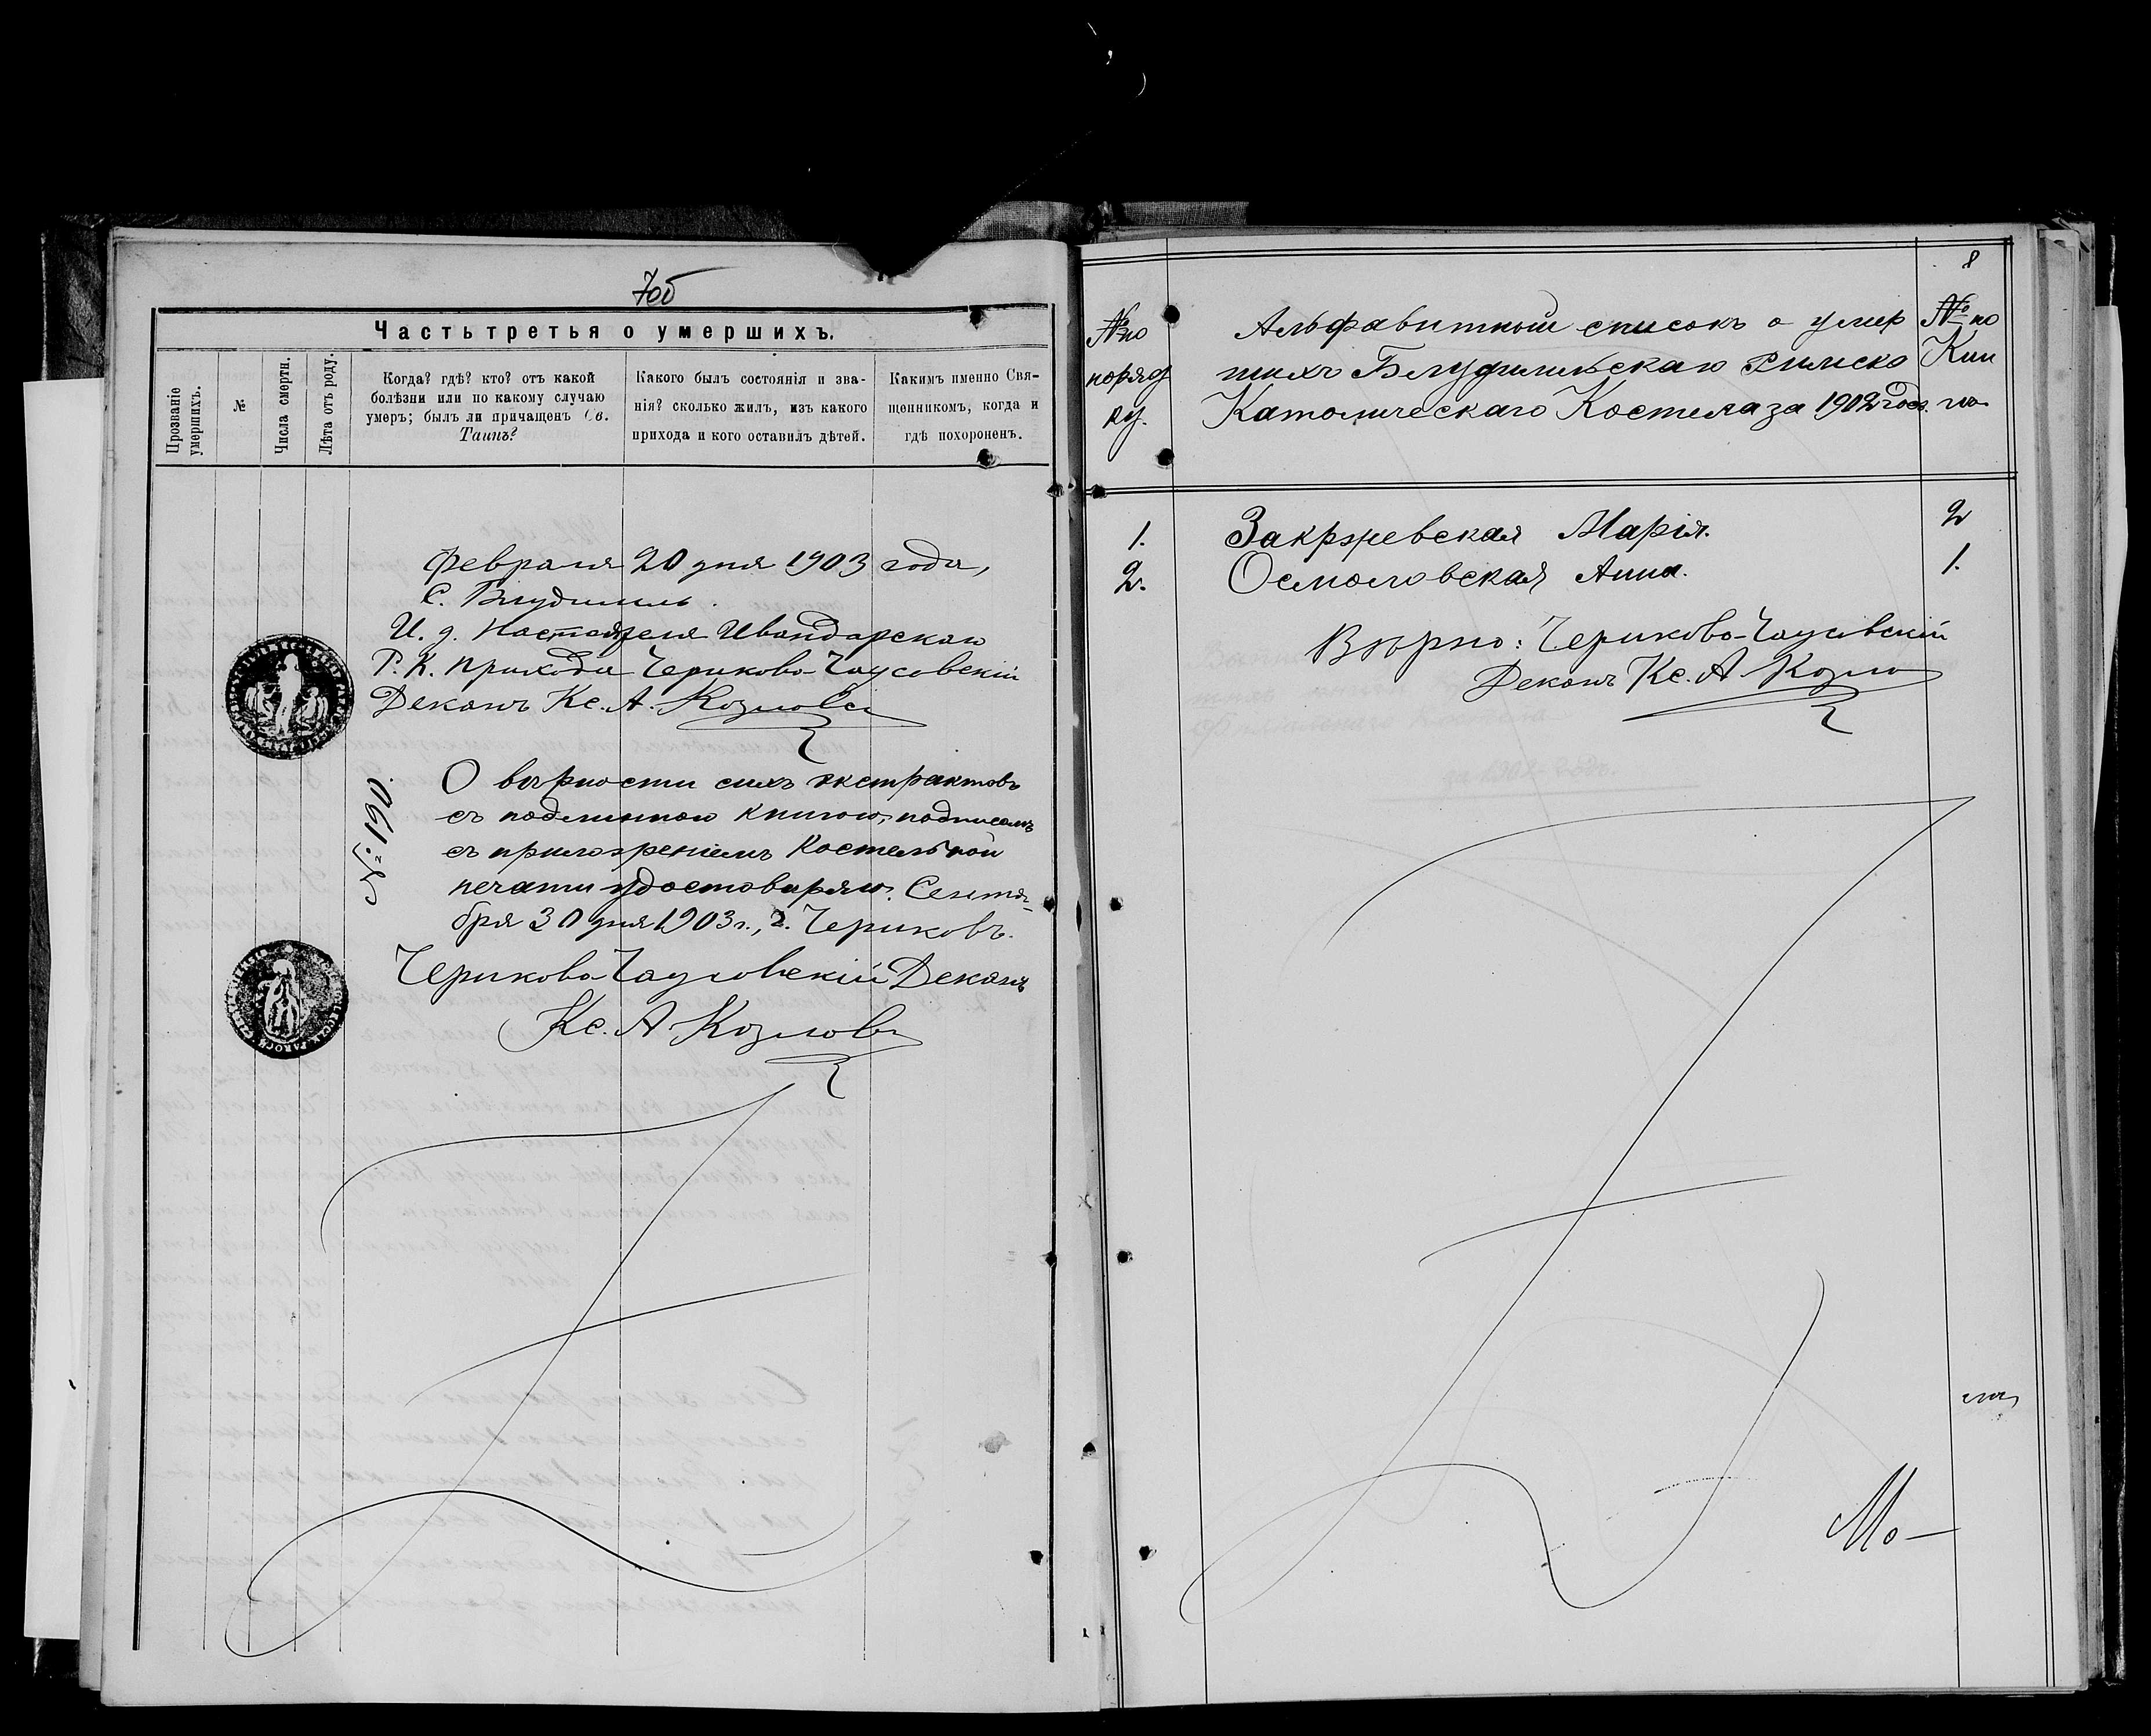 7об
Часть третья о умершихъ.
Прозваніе умершихъ.
№
Числа смерти.
Лѣта отъ роду.
Когда? гдѣ? кто? отъ какой
болѣзни или по какому случаю
умеръ; былъ ли причащенъ Св.
Таинъ?
Какого былъ состоянія и зва-
нія? сколько жилъ, изъ какого
прихода и кого оставилъ дѣтей.
Какимъ именно Свя-
щенникомъ, когда и
гдѣ похороненъ.
Февраля 20 дня 1903 года,
С.
И. д. Настоятеля Ивандарскаго
Р. К. Прихода Чериково-Чаусовскій
Деканъ Кс. А. Козловскі
№ 190.
О вѣрности сихъ экстрактовъ
съ подлинною книгою, подписомъ
съ приложеніемъ Костельной
печати удостовѣряю. Сентя-
бря 30 дня 1903 г., г. Чериковъ.
Чериково-Чаусовскій Деканъ
Кс. А Козловскі
8
№ по
поряд
ку.
Альфавитный списокъ о умер
шихъ Римско
Католическаго Костела за 1902 годъ.
№ по
Кни
гѣ
1. Закржевская Марія. 2
2. Осмоловская Анна. 1.
Вѣрно: Чериково-Чаусовскій
Деканъ Кс. А Козло
Мо-